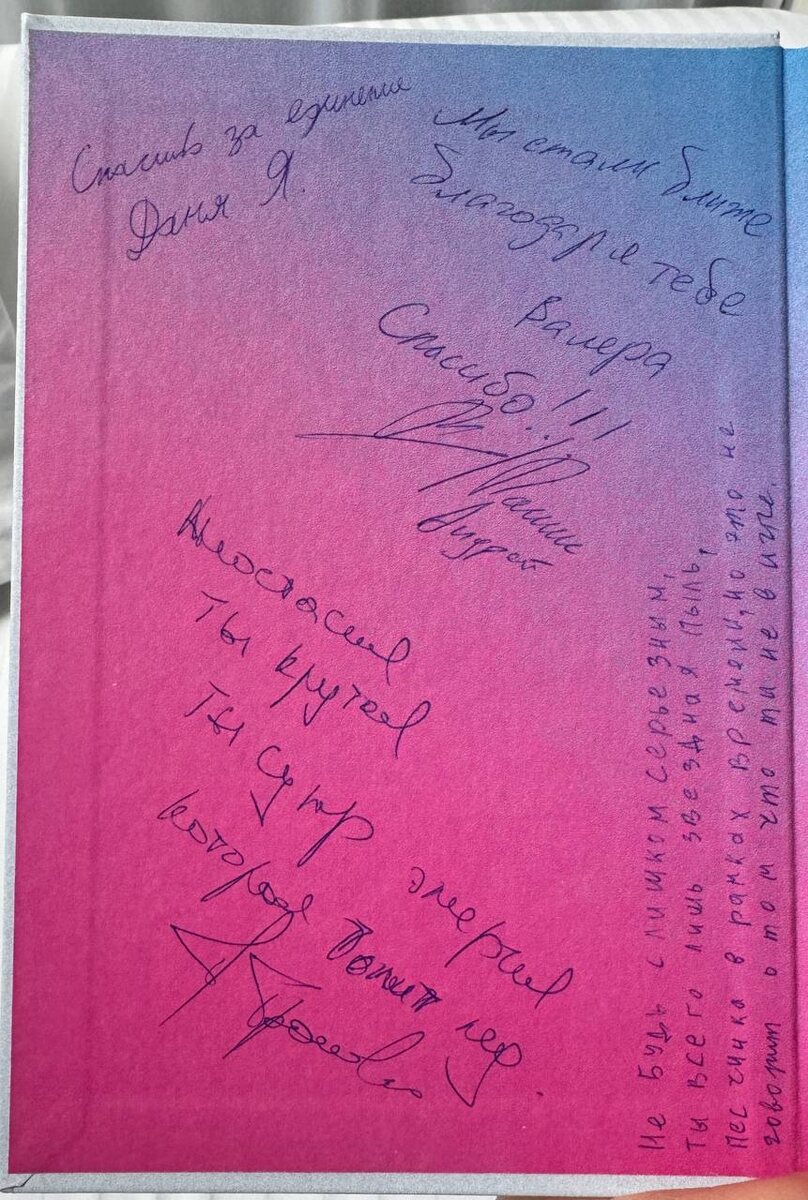 Спасибо за единение
Даня Я.
Мы стали ближе
благодаря тебе
Валера
Спасибо!!!
Андрей
Анастасия
ты крутая
ты супер энергия
которая топит лед.
Не будь слишком серьезным,
ты всего лишь звездная пыль,
песчинка в рамках времени, но это не
говорит о том что ты не в игре.